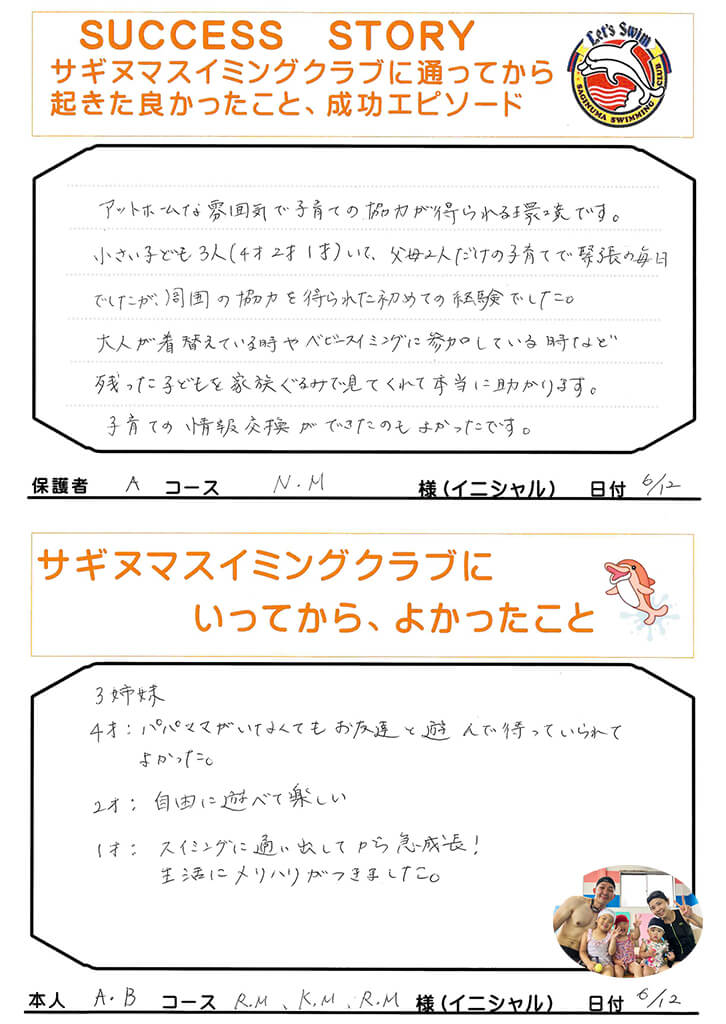 SUCCESS STORY
サギヌマスイミングクラブに通ってから
起きた良かったこと、成功エピソード
Let's Swim
SAGINUMA SWIMMING CLUB
アットホームな雰囲気で子育ての協力が得られる環境です。
小さい子ども3人(4才2才1才)いて、父母2人だけの子育てで緊張の毎日
でしたが、周囲の協力を得られた初めての経験でした。
大人が着替えている時やベビースイミングに参加している時など
残った子どもを家族ぐるみで見てくれて本当に助かります。
子育ての情報交換ができたのもよかったです。
保護者 A コース N.M 様(イニシャル) 日付 6/12
サギヌマスイミングクラブに
いってから、よかったこと
3姉妹
4才:パパママがいなくてもお友達と遊んで待っていられて
よかった。
2才:自由に遊べて楽しい
1才:スイミングに通い出してから急成長!
生活にメリハリがつきました。
本人 A.B コース R.M、K.M、R.M 様(イニシャル) 日付 6/12